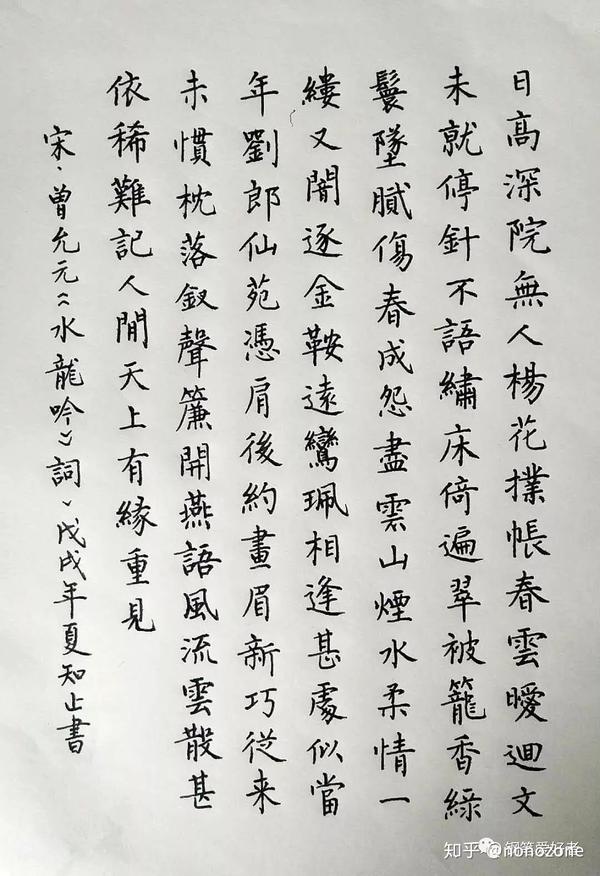 日高深院無人楊花撲帳春雲曖迴文
未就停針不語繡床倚遍翠被籠香綠
鬟墜膩傷春成怨盡雲山煙水柔情一
縷又闇逐金鞍遠鸞珮相逢甚處似當
年劉郎仙苑憑肩後約畫眉新巧從来
未慣枕落釵聲簾開燕語風流雲散甚
依稀難記人閒天上有緣重見
宋·曾允元《水龍吟》詞、戊戌年夏知止書
知乎 @nonozone
钢笔爱好者